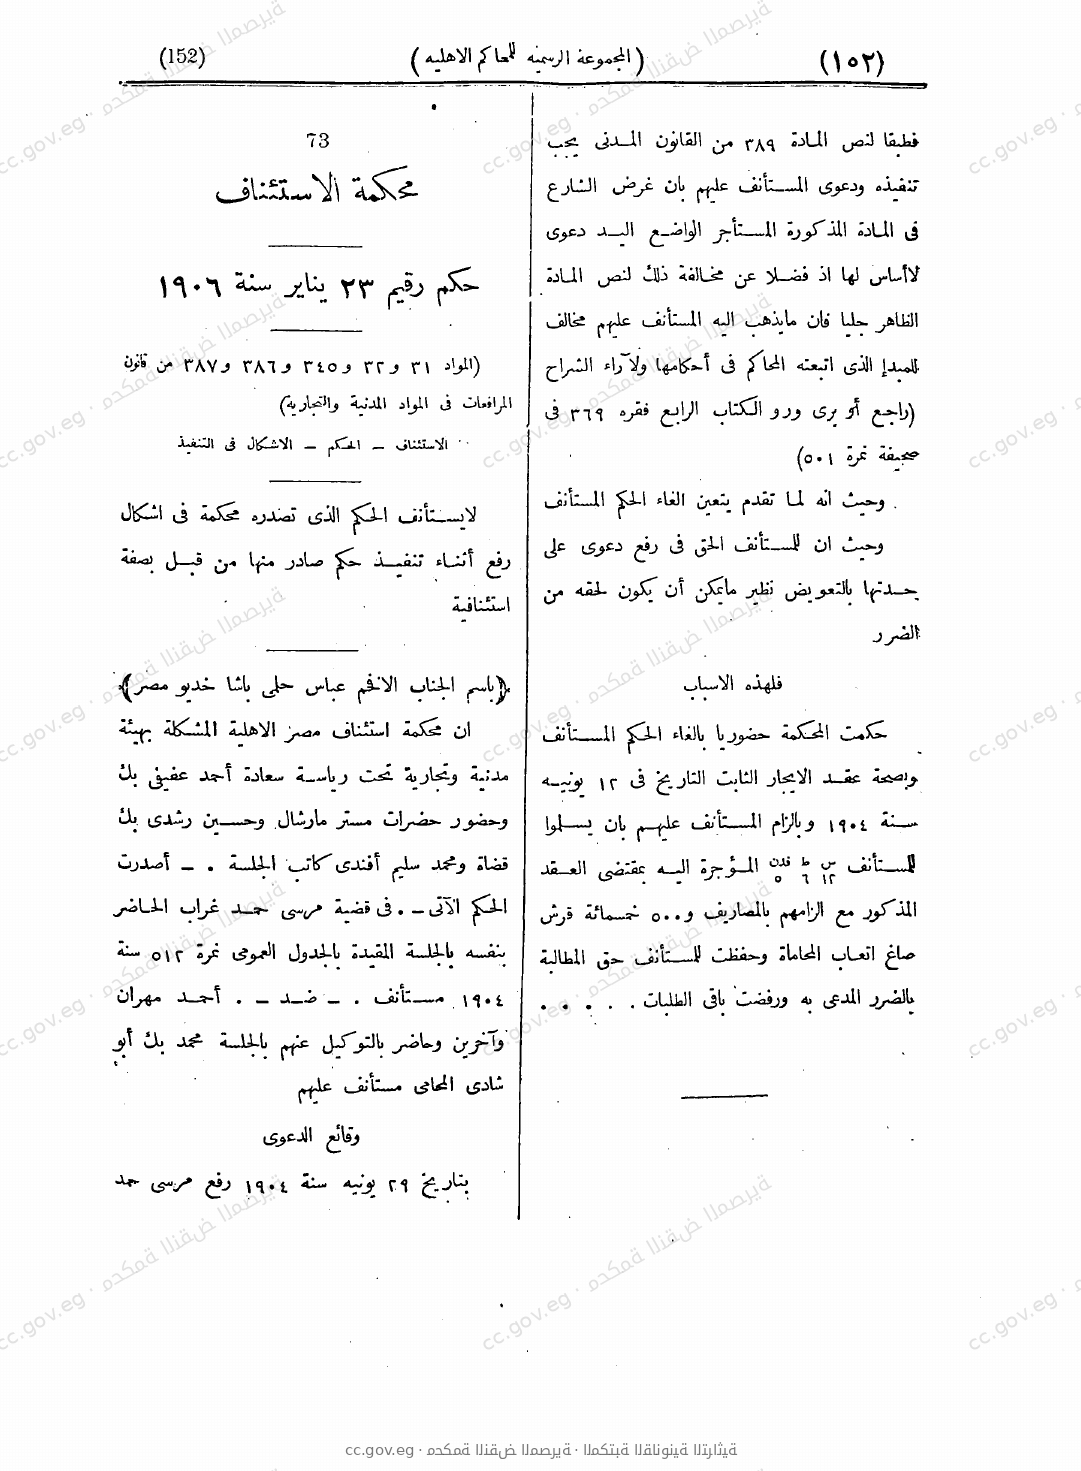 (١٥٢)
(المجموعة الرسمية للمحاكم الاهلية)
(152)
فطبقا لنص المادة ٣٨٩ من القانون المدنى يجب
تنفيذه ودعوى المستأنف عليهم بان غرض الشارع
فى المادة المذكورة المستأجر الواضع اليد دعوى
لاأساس لها اذ فضلا عن مخالفة ذلك لنص المادة
الظاهر جليا فان مايذهب اليه المستأنف عليهم مخالف
للمبدإ الذى اتبعته المحاكم فى أحكامها ولآراء الشراح
(راجع أو برى ورو الكتاب الرابع فقره ٣٦٩ فى
صحيفة نمرة ٥٠١)
وحيث انه لما تقدم يتعين الغاء الحكم المستأنف
وحيث ان للمستأنف الحق فى رفع دعوى على
حدتها بالتعويض نظير مايمكن أن يكون لحقه من
الضرر
فلهذه الاسباب
حكمت المحكمة حضوريا بالغاء الحكم المستأنف
وبصحة عقد الايجار الثابت التاريخ فى ١٢ يونيه
سنة ١٩٠٤ وبالزام المستأنف عليهم بان يسلموا
للمستأنف س ١٢ ط ٦ فدن ٥ المؤجرة اليه بمقتضى العقد
المذكور مع الزامهم بالمصاريف و٥٠٠ خمسمائة قرش
صاغ اتعاب المحاماة وحفظت للمستأنف حق المطالبة
بالضرر المدعى به ورفضت باقى الطلبات . . . . .
73
محكمة الاستئناف
حكم رقيم ٢٣ يناير سنة ١٩٠٦
(المواد ٣١ و٣٢ و٣٤٥ و٣٨٦ و٣٨٧ من قانون
المرافعات فى المواد المدنية والتجارية)
الاستئناف – الحكم – الاشكال فى التنفيذ
لايستأنف الحكم الذى تصدره محكمة فى اشكال
رفع أثناء تنفيذ حكم صادر منها من قبل بصفة
استئنافية
(باسم الجناب الافخم عباس حلمى باشا خديو مصر)
ان محكمة استئناف مصر الاهلية المشكلة بهيئة
مدنية وتجارية تحت رياسة سعادة أحمد عفيفى بك
وحضور حضرات مستر مارشال وحسين رشدى بك
قضاة ومحمد سليم أفندى كاتب الجلسة . – أصدرت
الحكم الآتى – . فى قضية مرسى حمد غراب الحاضر
بنفسه بالجلسة المقيدة بالجدول العمومى نمرة ٥١٢ سنة
١٩٠٤ مستأنف . – ضد – . أحمد مهران
وآخرين وحاضر بالتوكيل عنهم بالجلسة محمد بك أبو
شادى المحامى مستأنف عليهم
وقائع الدعوى
بتاريخ ٢٩ يونيه سنة ١٩٠٤ رفع مرسى حمد
cc.gov.eg · محكمة النقض المصرية · المكتبة القانونية التراثية